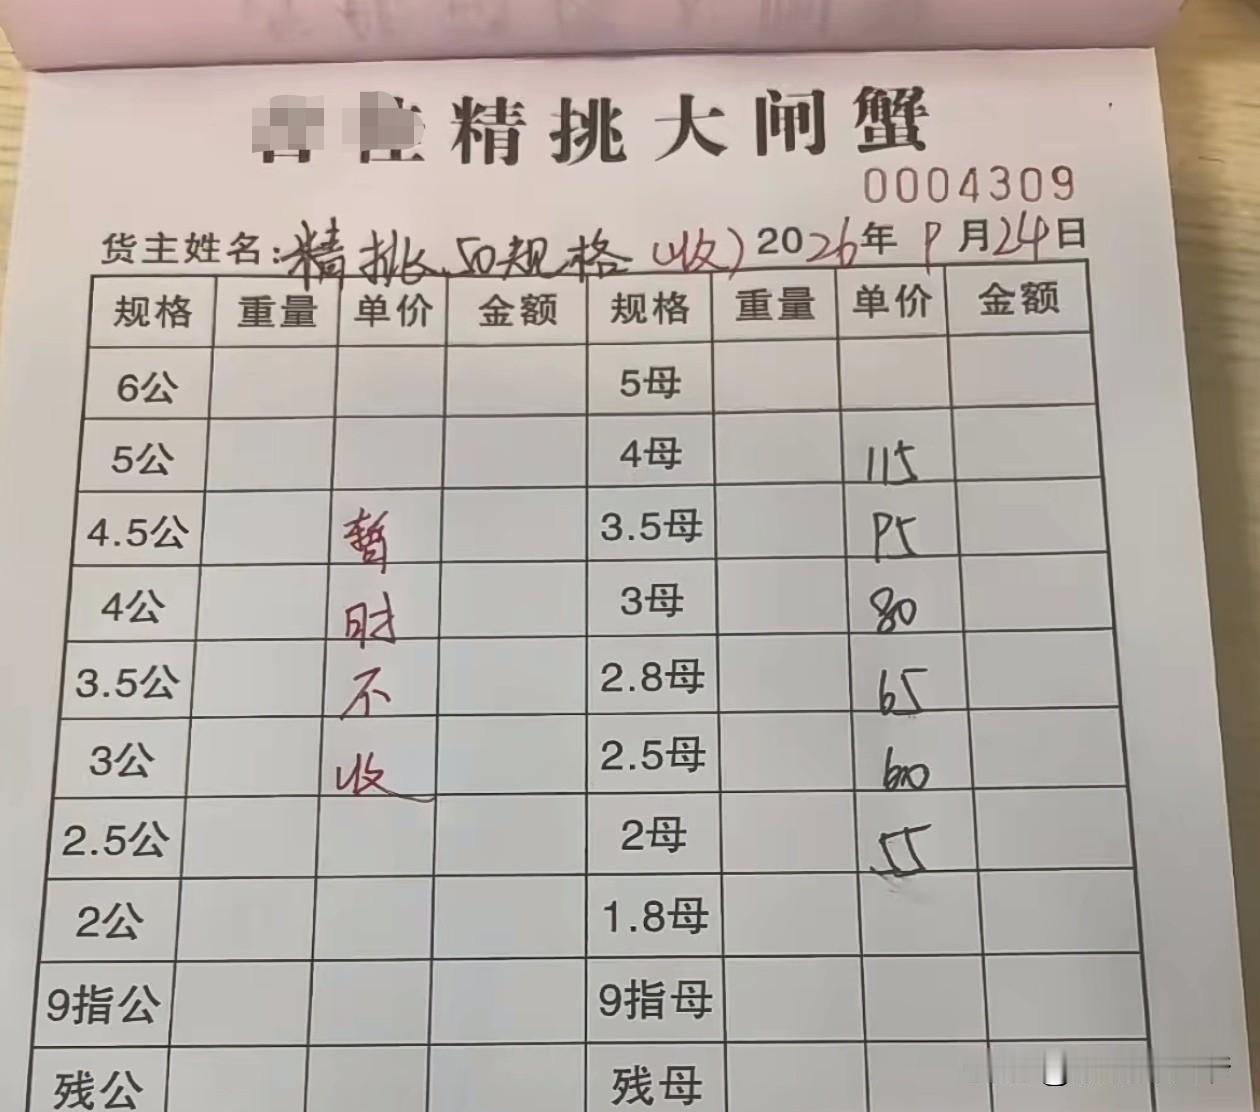 精挑大闸蟹
0004309
货主姓名:精挑50规格(收) 2026年9月24日
规格 重量 单价 金额 规格 重量 单价 金额
6公 5母
5公 4母 115
4.5公 暂 3.5母 95
4公 时 3母 80
3.5公 不 2.8母 65
3公 收 2.5母 60
2.5公 2母 55
2公 1.8母
9指公 9指母
残公 残母